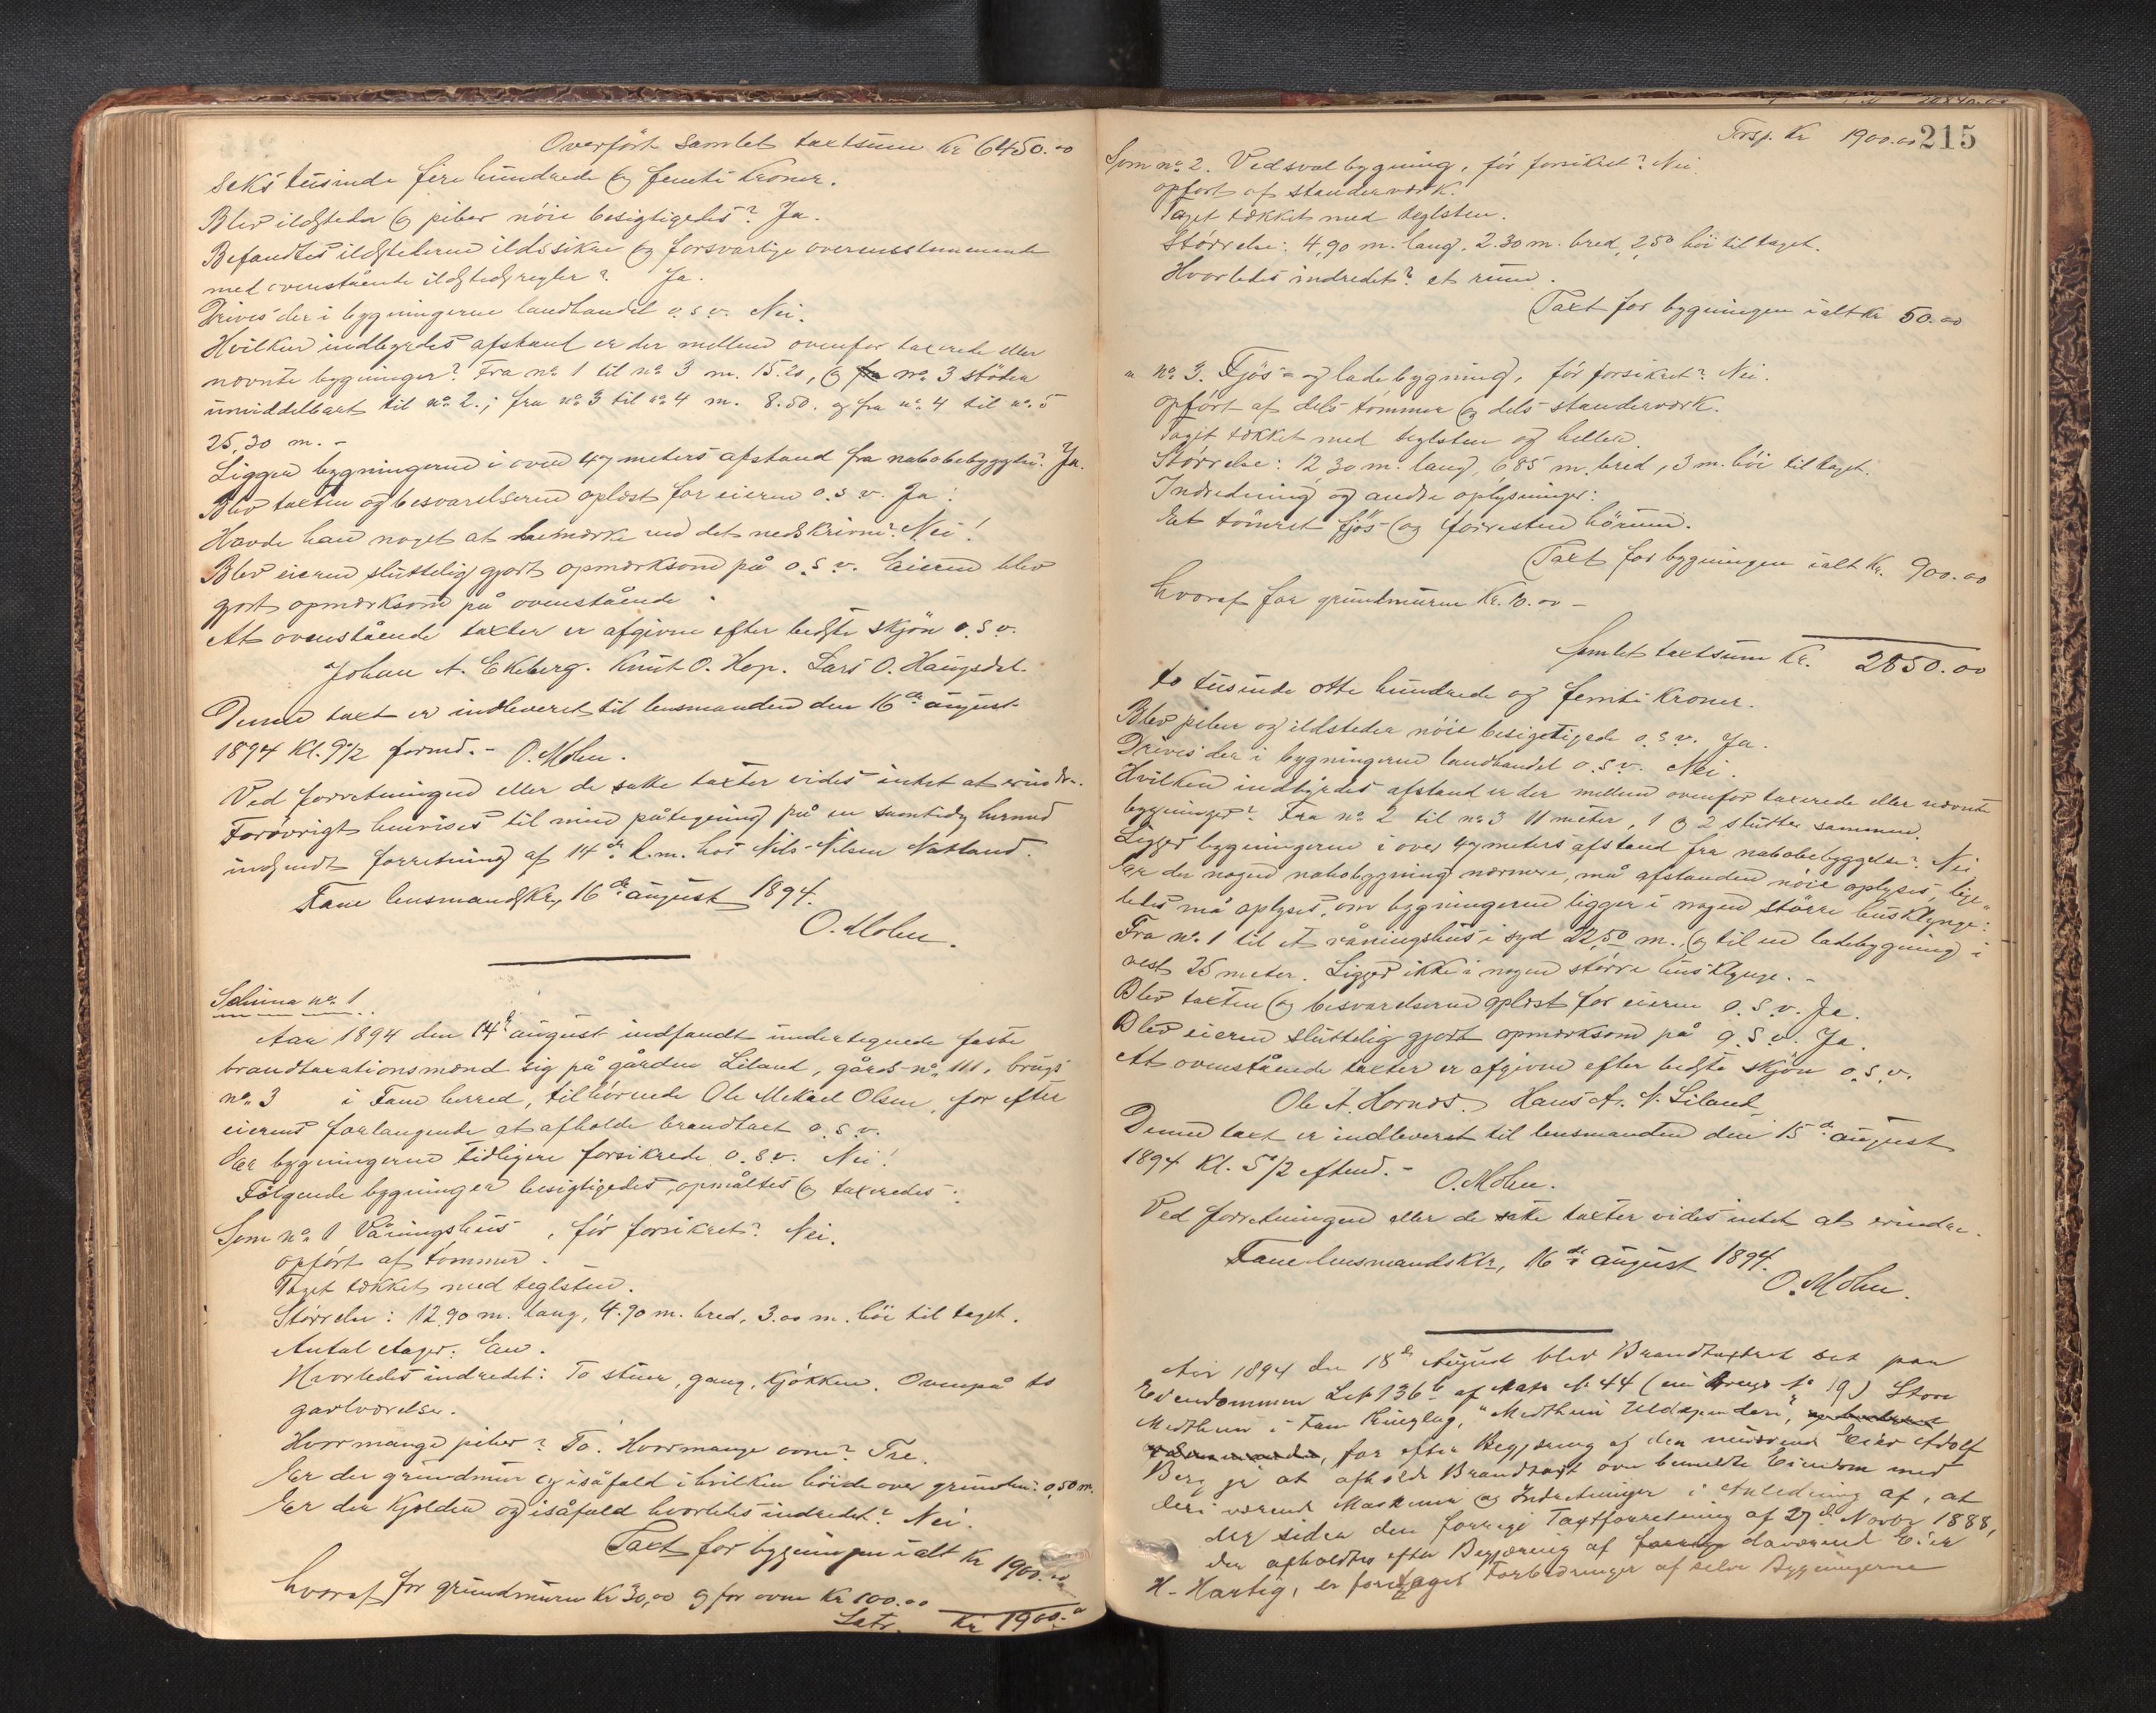 Overført samlet taxtsum Kr 6450.00
seks tusinde fire hundrede og femti Kroner.
Blev ildsteder og piber nöie besigtigedes? Ja.
Befandtes ildstederne ildsikre og forsvarlige overensstemmende
med ovenstående ildstedsregler? Ja.
Drives der i bygningerne landhandel o.s.v. Nei.
Hvilken indbyrdes afstand er der mellem ovenfor taxerede eller
nævnte bygninger? Fra no 1 til no 3 m. 15.20, og fra no 3 stöder
umiddelbart til no 2.; fra no 3 til no 4 m. 8.50. og fra no 4 til no 5
25,30 m. -
Ligger bygningerne i over 47 meters afstand fra nabobebyggelse? Ja.
Blev taxten og besvarelserne oplæst for eieren o.s.v. Ja!
Havde han noget at bemærke ved det nedskrevne? Nei!
Blev eieren sluttelig gjort opmærksom på o.s.v. Eieren blev
gjort opmærksom på ovenstående.
At ovenstående taxter er afgivne efter bedste skjön o.s.v.
Johan A. Ekeberg. Knut O. Hop. Lars O. Haugsdal.
Denne taxt er indleveret til lensmanden den 16de august
1894 Kl. 9 1/2 formd. - O. Mohn.
Ved forretningen eller de satte taxter vides intet at erindre.
Forövrigt henvises til min påtegning på en samtidig hermed
indsendt forretning af 14de d.m. hos Nils Nilsen Natland.
Fane lensmandskr, 16de august 1894.
O. Mohn.
Schema no 1.
Aar 1894 den 14de august indfandt undertegnede faste
brandtaxationsmænd sig på gården Liland, gårds-no 111, brugs
no 3 i Fane herred, tilhörende Ole Mekael Olsen, for efter
eierens forlangende at afholde brandtaxt o.s.v.
Er bygningerne tidligere forsikrede o.s.v. Nei!
Fölgende bygninger besigtigedes, opmåltes og taxeredes:
Som no 1 Våningshus, för forsikret? Nei.
opfört af tömmer.
Taget tækket med teglsten.
Störrelse: 12.90 m. lang, 4.90 m. bred, 3.00 m. höi til taget.
Antal etager: En.
Hvorledes indredet: To stuer, gang, kjökken. Ovenpå to
gavlværelser.
Hvor mange piber? To. Hvormange ovne? Tre.
Er der grundmur og isåfald i hvilken höide over grunden: 0,50 m.
Er der kjelder og isåfald hvorledes indredet? Nei.
Taxt for bygningen ialt Kr 1900.00
hvoraf for grundmuren Kr 30,00 og for ovne Kr 100.00
Latr. Kr 1900.00
215
Trsp. Kr 1900.00
Som no 2. Vedsvalbygning, för forsikret? Nei.
opfört af standerværk.
Taget tækket med teglsten.
Störrelse: 4,90 m. lang, 2.30 m. bred, 2,50 höi til taget.
Hvorledes indredet? et rum.
Taxt for bygningen ialt Kr 50.00
" no 3. Fjös- og ladebygning, för forsikret? Nei.
opfört af dels tömmer og dels standerværk.
Taget tækket med teglsten og heller.
Störrelse: 12,30 m. lang, 6,85 m. bred, 3 m. höi til taget.
Indredning og andre oplysninger:
Et tömret fjös og forresten hörum.
Taxt for bygningen ialt Kr. 900.00
hvoraf for grundmuren Kr. 10.00 -
Samlet taxtsum Kr. 2850.00
to tusinde otte hundrede og femti Kroner.
Blev piber og ildsteder nöie besigtigede o.s.v. Ja.
Drives der i bygningerne landhandel o.s.v. Nei.
Hvilken indbyrdes afstand er der mellem ovenfor taxerede eller nævnte
bygninger? Fra no 2 til no 3 11 meter, 1 og 2 stutter sammen.
Ligger bygningerne i over 47 meters afstand fra nabobebyggelse? Nei
Er der nogen nabobygning nærmere, må afstanden nöie oplyses, lige-
ledes må oplyses, om bygningerne ligger i nogen större husklynge:
Fra no 1 til et våningshus i syd 22,50 m. og til en ladebygning i
vest 25 meter. Ligger ikke i nogen större husklynge. -
Blev taxten og besvarelserne oplæst for eieren o.s.v. Ja.
Blev eieren sluttelig gjort opmærksom på o.s.v. Ja.
At ovenstående taxter er afgivne efter bedste skjön o.s.v.
Ole A. Hornæs. Hans A. N. Liland
Denne taxt er indleveret til lensmanden den 15de august
1894 Kl. 5 1/2 eftmd. - O. Mohn.
Ved forretningen eller de satte taxter vides intet at erindre.
Fane lensmandsktr, 16de august 1894.
O. Mohn.
Aar 1894 den 18de August blev Brandtaxtret sat paa
Eiendommen Lnr 136b af Matr No 44 (nu brugs No 19) Store
Midthun i Fane Thinglag, "Midthun Uldspinderi",
for efter Begjæring af den nuværende Eier Adolf
Berg jr at afholde Brandtaxt over bemeldte Eiendom med
deri værende Maskiner og Indretninger i Anledning af, at
der siden den forrige Taxtforretning af 27de Novbr 1888,
der afholdtes efter Begjæring af daværende Eier
H. Hartig, er foretaget Forbedringer af selve Bygningerne